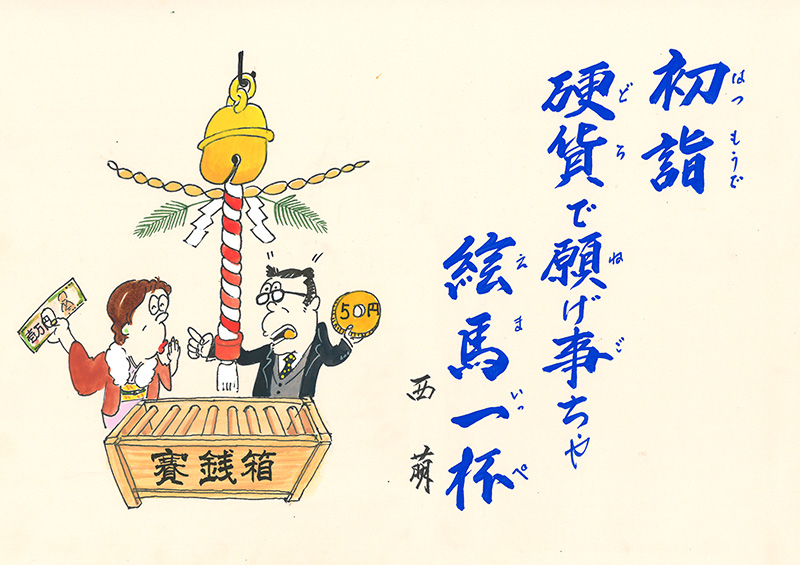 初詣
硬貨で願げ事ちゃ
絵馬一杯
西萌
はつもうで
どろ
ねご
えまいっぺ
壱万円
50円
賽銭箱